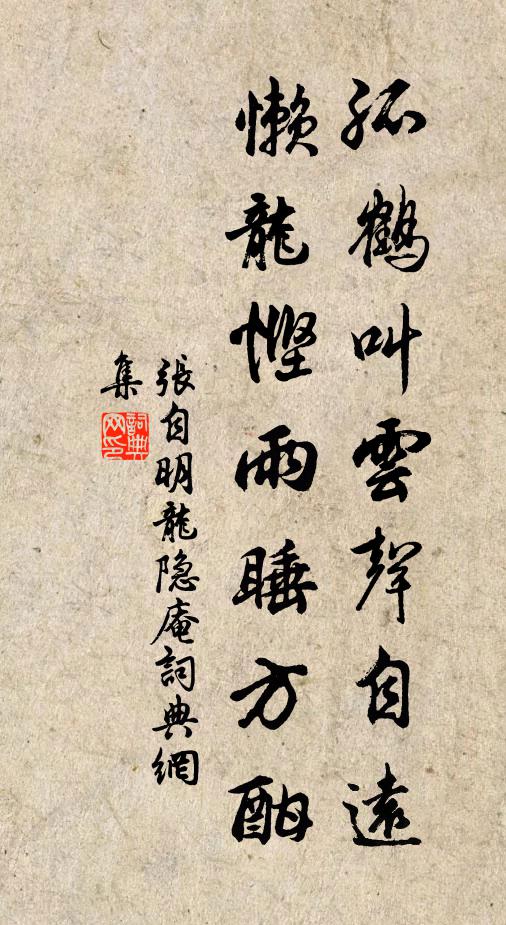 孤鶴叫雲聲自遠
懶龍慳雨睡方酣
張自明龍隐庵詞典網
集
詞典网印